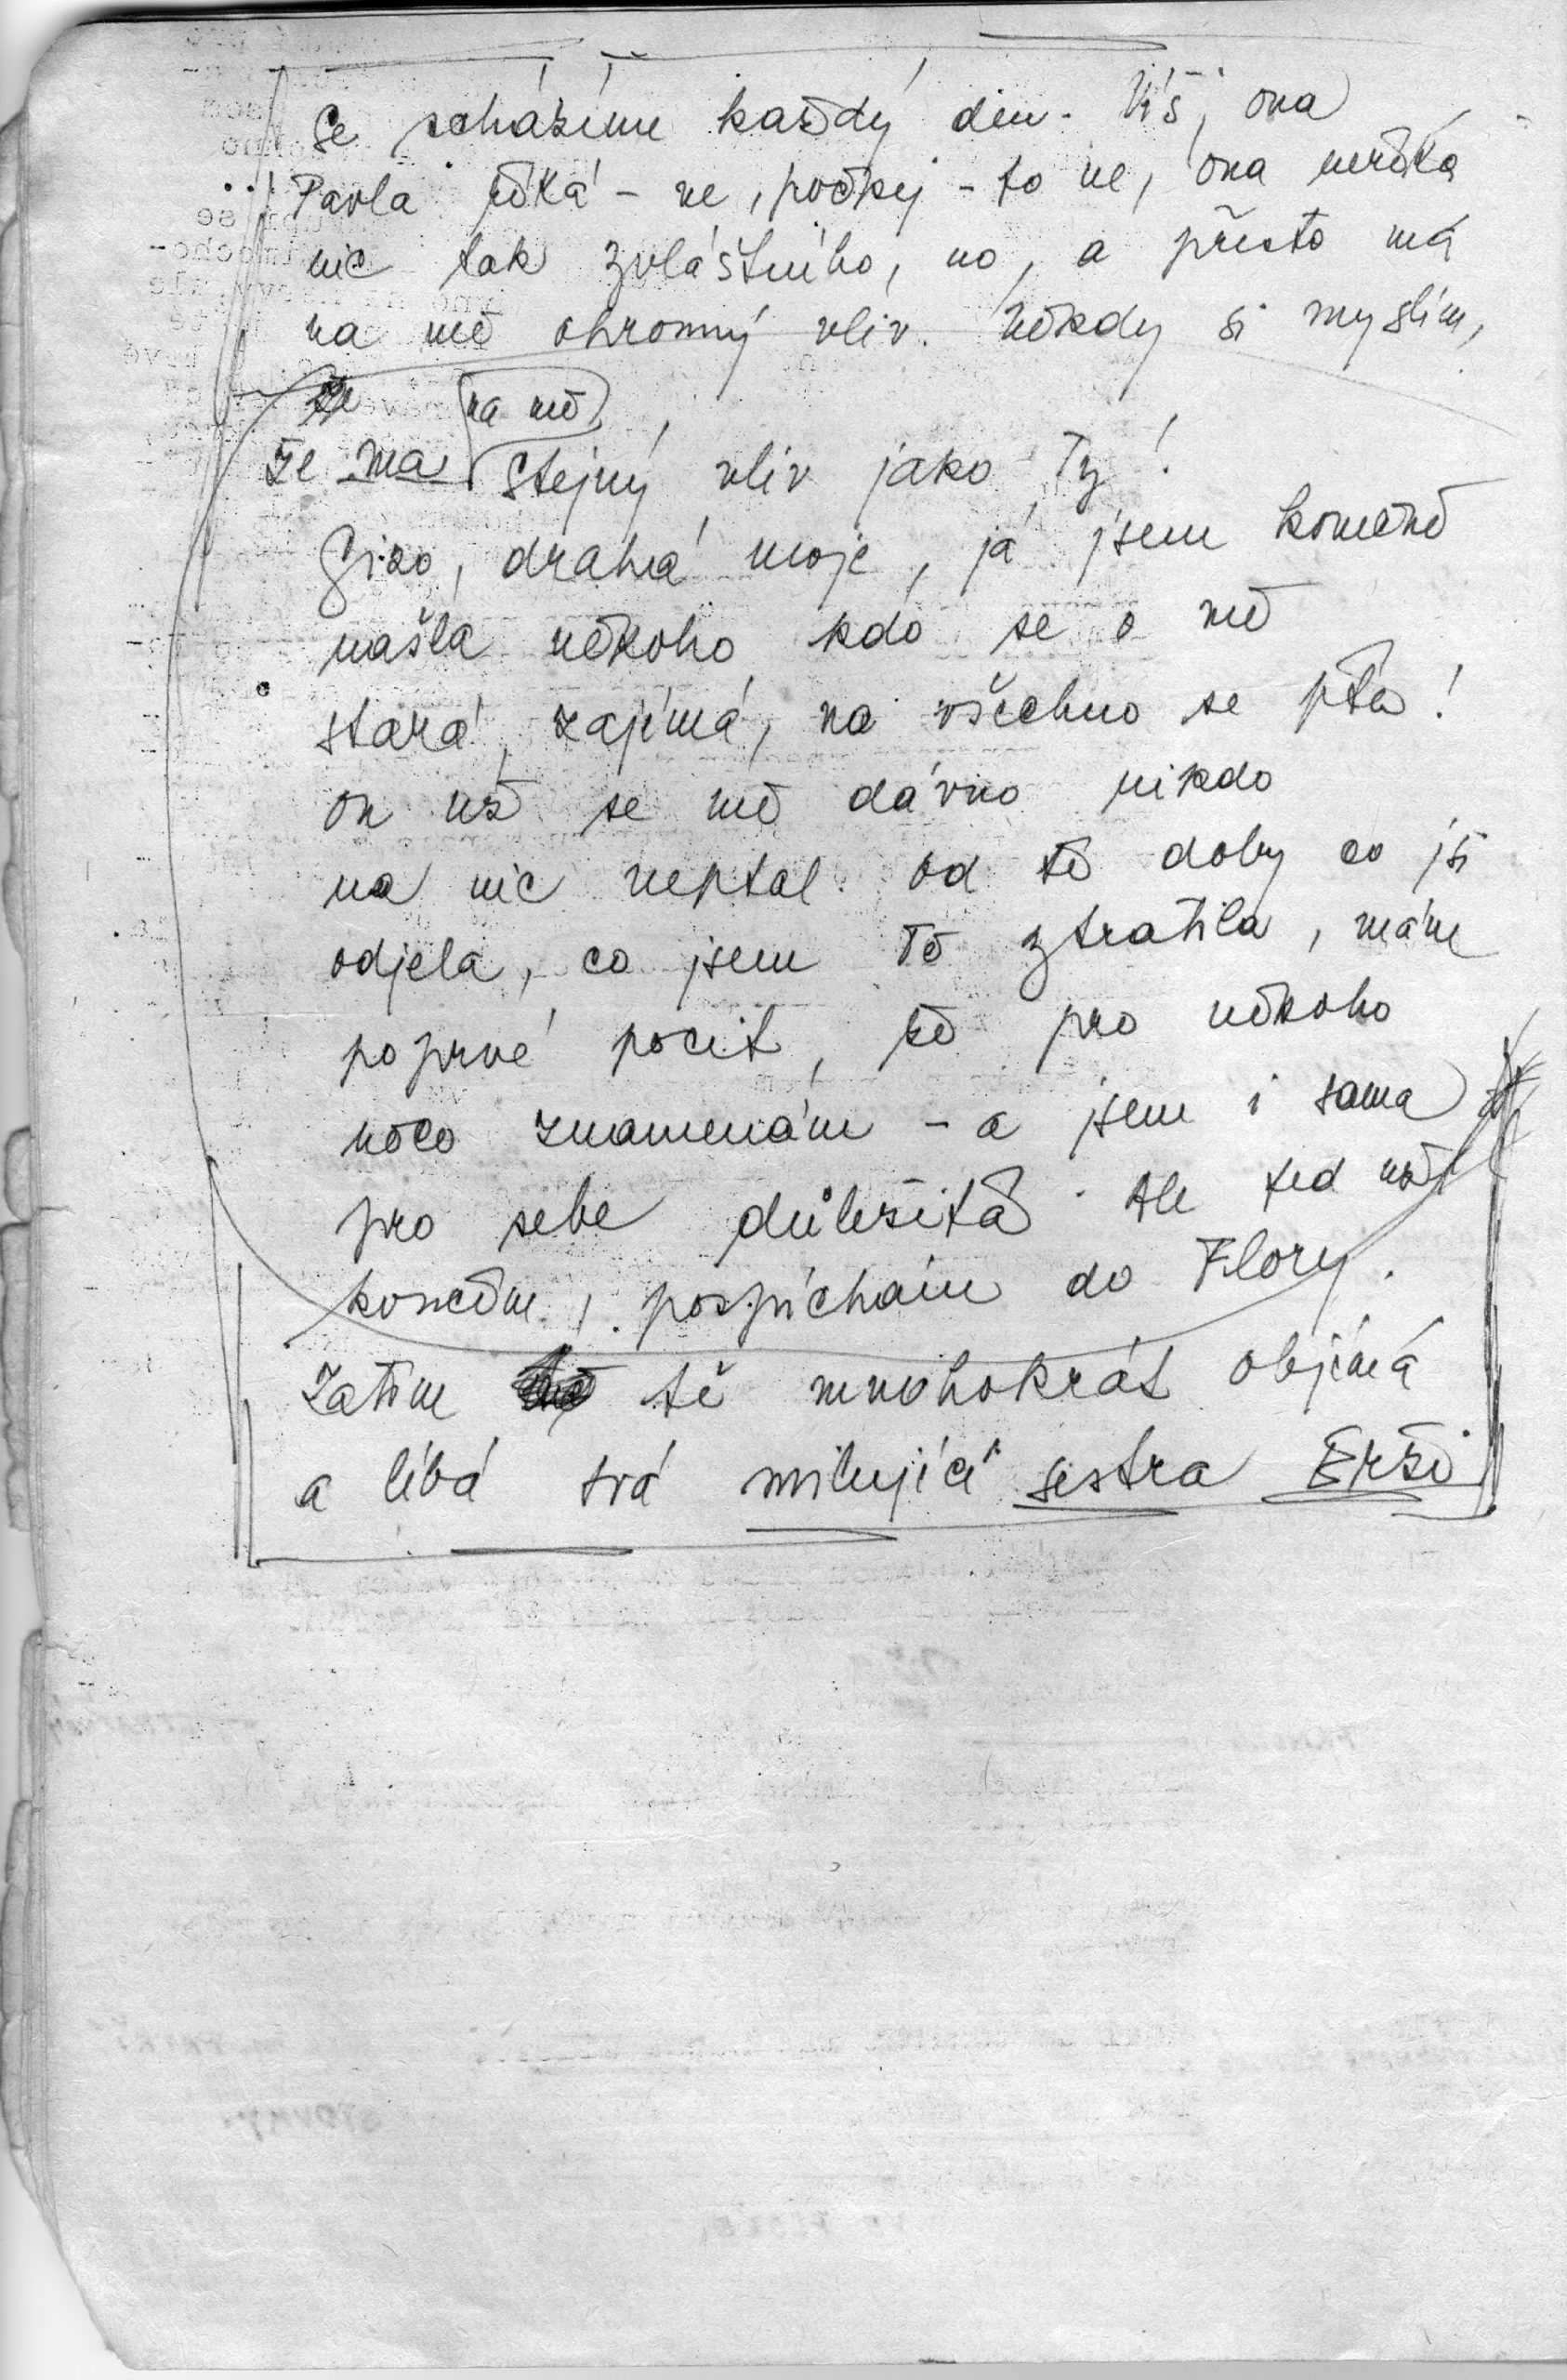 se scházíme každý den. Víš, ona
Pavla říká - ne, počkej - to ne, ona neříká
nic tak zvláštního, no, a přesto má
na mě ohromný vliv. Někdy si myslím,
na mě
že má stejný vliv jako Ty!
Gizo, drahá moje, já jsem konečně
našla někoho, kdo se o mě
stará, zajímá, na všechno se ptá!
on už se mě dávno nikdo
na nic neptal. Od té doby co jsi
odjela, co jsem Tě ztratila, mám
poprvé pocit, že pro někoho
něco znamenám - a jsem i sama
pro sebe důležitá. Ale teď už
končím, pospíchám do Flory.
Zatím tě mnohokrát objímá
a líbá tvá milující sestra Erži